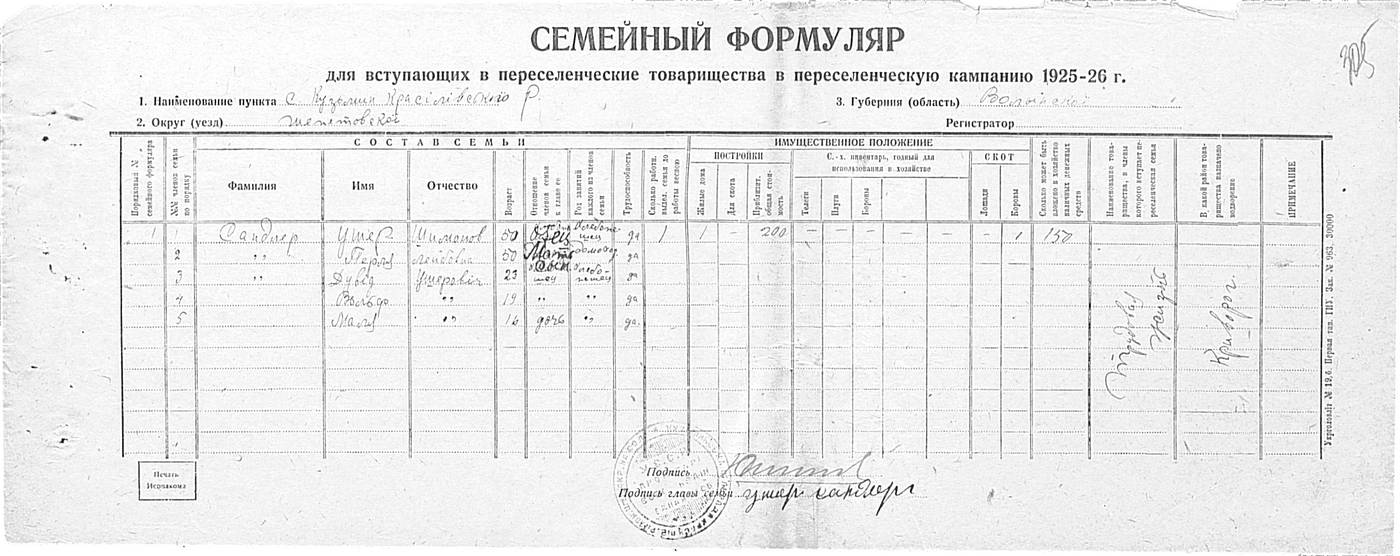 305
СЕМЕЙНЫЙ ФОРМУЛЯР
для вступающих в переселенческие товарищества в переселенческую кампанию 1925-26 г.
1. Наименование пункта с. Кузьмин Красілівського р.
3. Губерния (область) Волынской
2. Округ (уезд) Шепетовской
Регистратор
СОСТАВ СЕМЬИ
ИМУЩЕСТВЕННОЕ ПОЛОЖЕНИЕ
Порядковый № семейного формуляра
№№ членов семьи по порядку
Фамилия
Имя
Отчество
Возраст
Отношение членов семьи к главе ее
Род занятий каждого из членов семьи
Трудоспособность
Сколько работн. выдел. семья до работы весною
ПОСТРОЙКИ
Жилые дома
Для скота
Приблизит. общая стоимость
С.-х. инвентарь, годный для использования в хозяйстве
Телеги
Плуги
Бороны
СКОТ
Лошади
Коровы
Сколько может быть вложено в хозяйство наличных денежных средств
Наименование товарищества, в члены которого вступает переселенческая семья
В какой район товарищества назначено водворение
ПРИМЕЧАНИЕ
1 1 Сандлер Ушер Шимонов 50 Отец да 1 1 — 200 — — — — — — — 1 150
2 " Перля Лейбовна 50 Мать да
3 " Дувід Ушеровіч 23 Сын да
4 Вольф " 19 " " да
5 Маля " 16 дочь " да
Укрполовліг № 19,6. Первая тип. ГИУ. Зак. № 963. 30000
Печать Исполкома
Подпись
Подпись главы семьи ушер сандлер